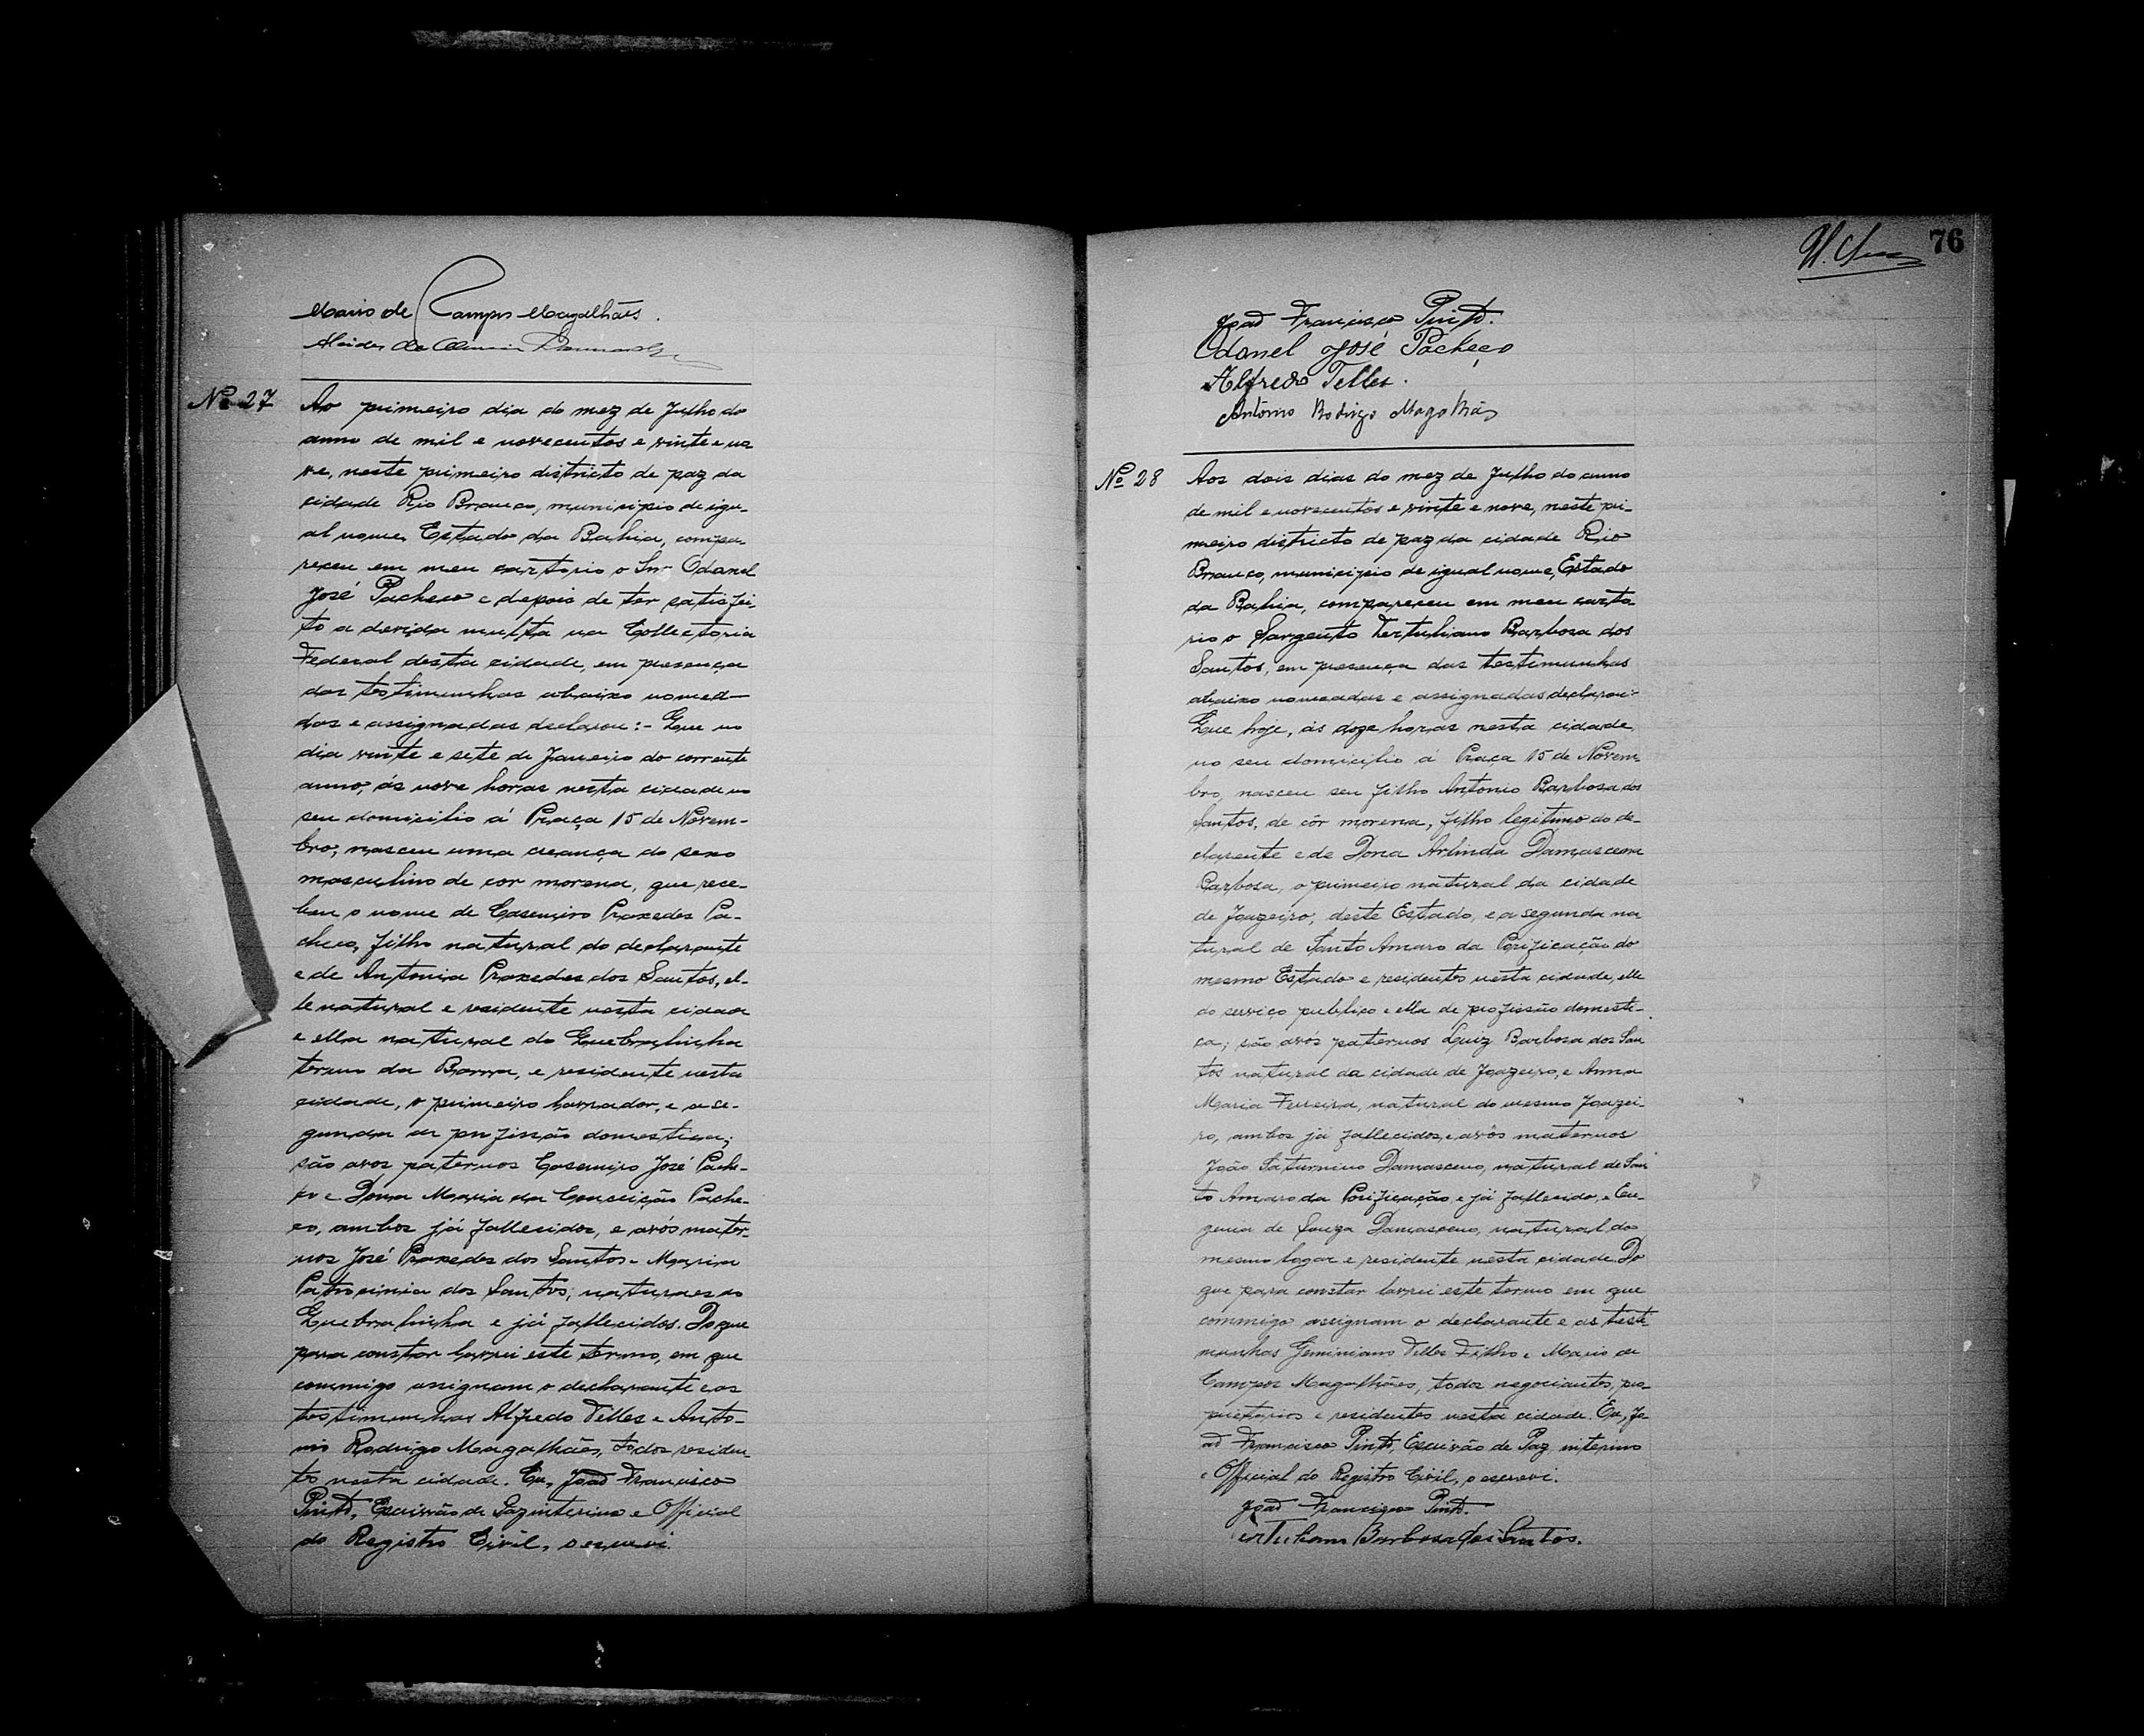 Mario de Campos Magalhães.
Alcides de Oliveira
Nº 27
Ao primeiro dia do mez de Julho do
anno de mil e novecentos e vinte e no
ve, neste primeiro districto de paz da
cidade Rio Branco, municipio de igu-
al nome, Estado da Bahia, compa-
receu em meu cartorio o Snr Odanel
José Pacheco e depois de ter satisfei-
to a devida multa na Collectoria
Federal desta cidade, em presença
das testimunhas abaixo nomea-
das e assignadas declarou:- Que no
dia vinte e sete de Janeiro do corrente
anno, ás nove horas nesta cidade no
seu domicilio á Praça 15 de Novem-
bro; nasceu uma creança do sexo
masculino de cor morena, que rece-
beu o nome de Casemiro Praxedes Pa-
checo, filho natural do declarante
e de Antonia Praxedes dos Santos, el-
le natural e residente nesta cidade
e ella natural do Quebralinha
termo da Barra, e residente nesta
cidade, o primeiro lavrador, e a se-
gunda de profissão domestica;
são avos paternos Casemiro José Pache-
co e Dona Maria da Conceição Pache-
co, ambos já fallecidos, e avós mater-
nos José Praxedes dos Santos e Maria
Patrocinia dos Santos; naturaes do
Quebralinha e já fallecidos. Do que
para constar lavrei este termo, em que
commigo assignam o declarante e as
testimunhas Alfredo Telles e Anto-
nio Rodrigo Magalhães, todos residen-
tes nesta cidade. Eu, João Francisco
Pinto, Escrivão de Paz interino e Official
do Registro Civil, o escrevi.
76
João Francisco Pinto.
Odanel José Pacheco
Alfredo Telles.
Antônio Rodrigo Magalhães
Nº 28
Aos dois dias do mez de Julho do anno
de mil e novecentos e vinte e nove, neste pri-
meiro districto de paz da cidade Rio
Branco, municipio de igual nome, Estado
da Bahia, compareceu em meu carto
rio o Sargento Tertuliano Barbosa dos
Santos, em presença das testimunhas
abaixo nomeadas e assignadas declarou:-
Que hoje, ás doze horas nesta cidade,
no seu domicilio á Praça 15 de Novem
bro, nasceu seu filho Antonio Barbosa dos
Santos, de côr morena, filho legitimo do de-
clarante e de Dona Arlinda Damascena
Barbosa, o primeiro natural da cidade
de Joazeiro, deste Estado, e a segunda na
tural de Santo Amaro da Purificação do
mesmo Estado e residentes nesta cidade, elle
do serviço publico e ella de profissão domesti-
ca; são avós paternos Luiz Barbosa dos San
tos natural da cidade de Joazeiro, e Anna
Maria Ferreira, natural do mesmo Joazei-
ro, ambos já fallecidos, e avós maternos
João Saturnino Damasceno, natural de San
to Amaro da Purificação e já fallecido, e Eu-
genia de Souza Damasceno, natural do
mesmo logar e residente nesta cidade. Do
que para constar lavrei este termo em que
commigo assignam o declarante e as testi-
munhas Geminiano Telles Filho e Mario de
Campos Magalhães, todos negociantes, pro-
prietarios e residentes nesta cidade. Eu, Jo-
ão Francisco Pinto, Escrivão de Paz interino
e Official do Registro Civil, o escrevi.
João Francisco Pinto.
Tertuliano Barbosa dos Santos.